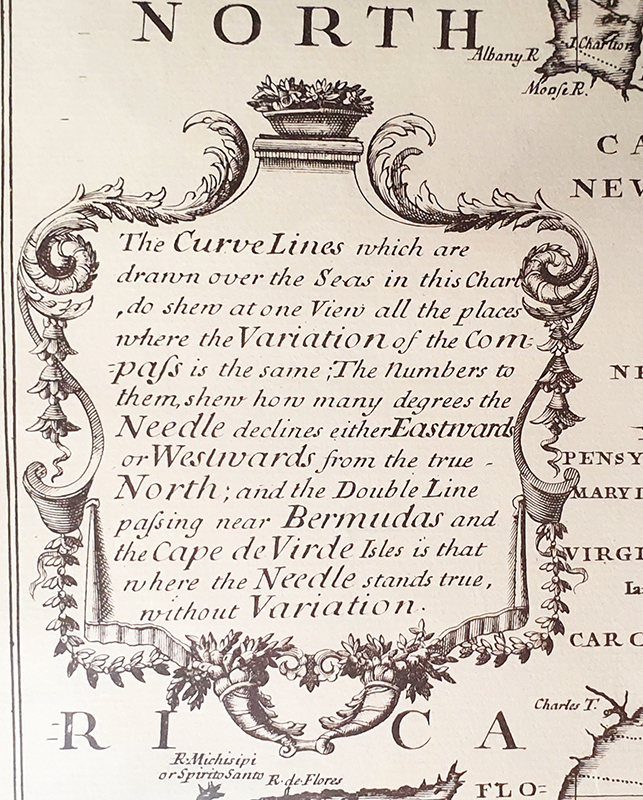 NORTH
Albany R
I Charlton
Moose R.
CA
NEW
The Curve Lines which are
drawn over the Seas in this Chart
, do shew at one View all the places
where the Variation of the Com-
-paſs is the same; The Numbers to
them, shew how many degrees the
Needle declines either Eastwards
or Westwards from the true -
North; and the Double Line
paſsing near Bermudas and
the Cape de Virde Isles is that
where the Needle stands true,
without Variation.
NE
PENSY
MARY L
VIRGI
La
CARO
Charles T.
RICA
R. Michisipi
or Spirito Santo
R. de Flores
FLO=